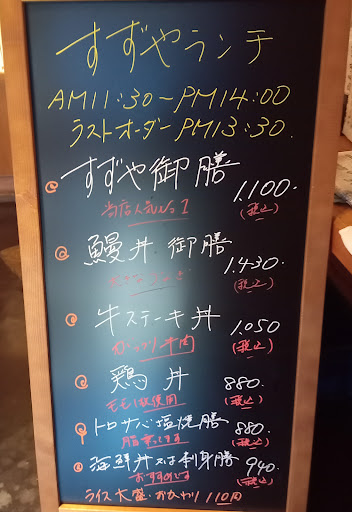 すずやランチ
AM11:30〜PM14:00
ラストオーダーPM13:30.
すずや御膳
1.100.
当店人気No1
(税込)
鰻丼 御膳
1.430.
(税込)
牛ステーキ丼
1.050
がっつり牛肉
(税込)
鶏丼
880.
モモ1枚使用
(税込)
トロサバ塩焼膳
880.
脂乗ってます
(税込)
海鮮丼又は刺身膳
940.
おすすめです
(税込)
ライス大盛・おかわり110円